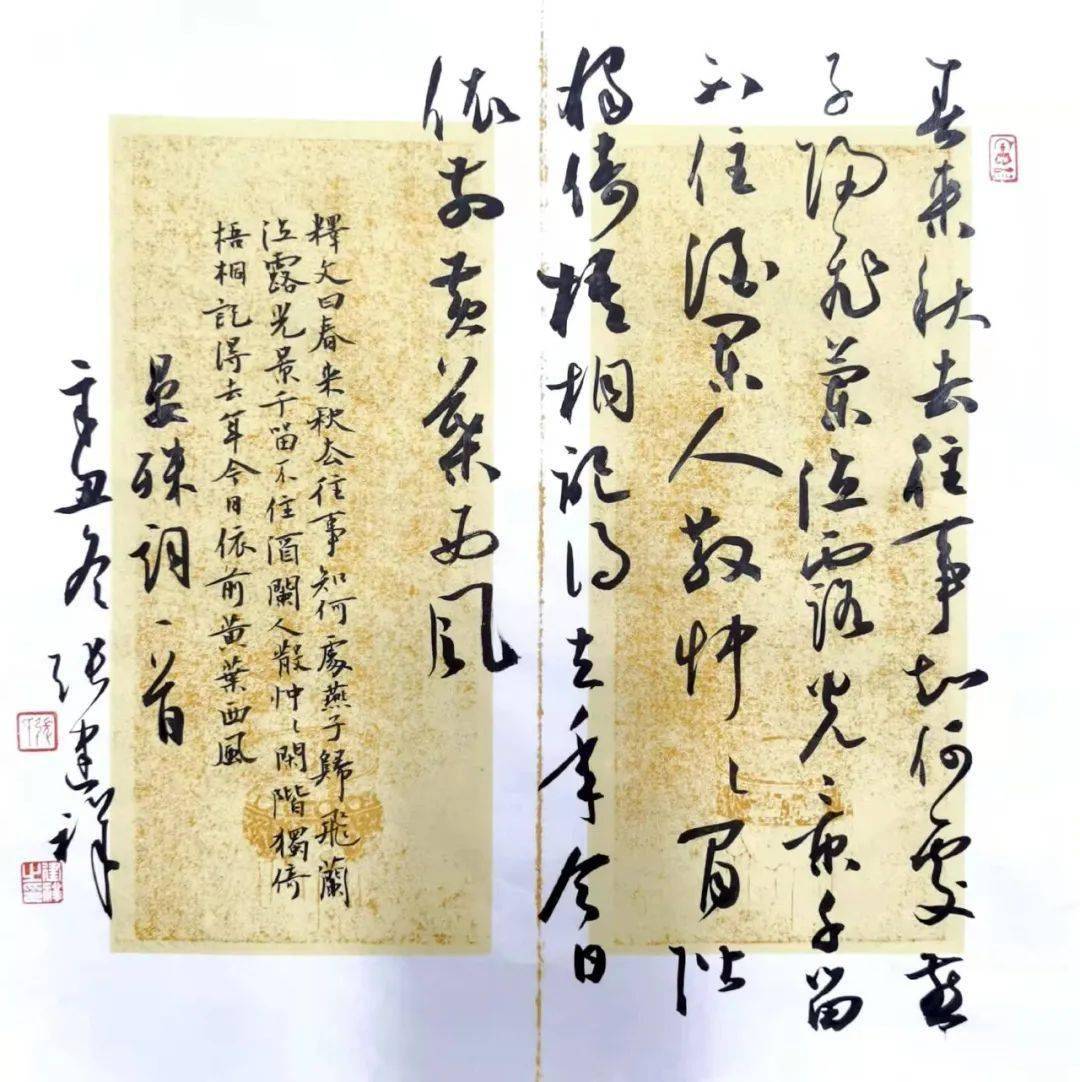 春来秋去往事知何處燕
子歸飛蘭泣露光景千留
不住酒闌人散忡〻閒階
獨倚梧桐記得去年今日
依前黄葉西風
釋文曰春来秋去往事知何處燕子歸飛蘭
泣露光景千留不住酒闌人散忡〻閑階獨倚
梧桐記得去年今日依前黄葉西風
晏殊詞一首
辛丑冬張建祥